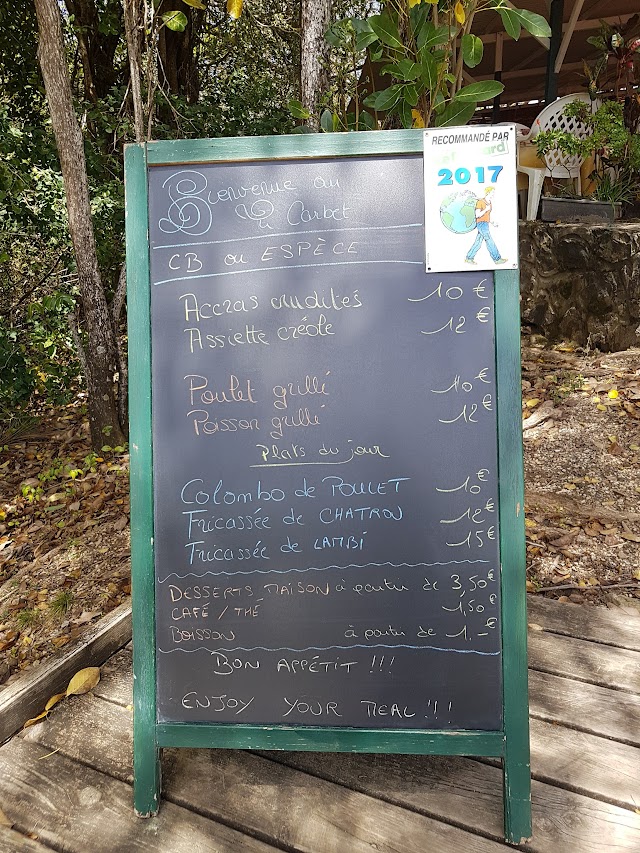 RECOMMANDÉ PAR
2017
Bienvenue au
Ti Carbet
CB ou ESPÈCE
Accras crudités 10 €
Assiette créole 12 €
Poulet grillé 10 €
Poisson grillé 12 €
Plats du jour
Colombo de POULET 10 €
Fricassée de CHATROU 12 €
Fricassée de LAMBI 15 €
DESSERTS MAISON à partir de 3,50 €
CAFÉ / THÉ 1,50 €
BOISSON à partir de 1.- €
BON APPÉTIT !!!
ENJOY YOUR MEAL !!!